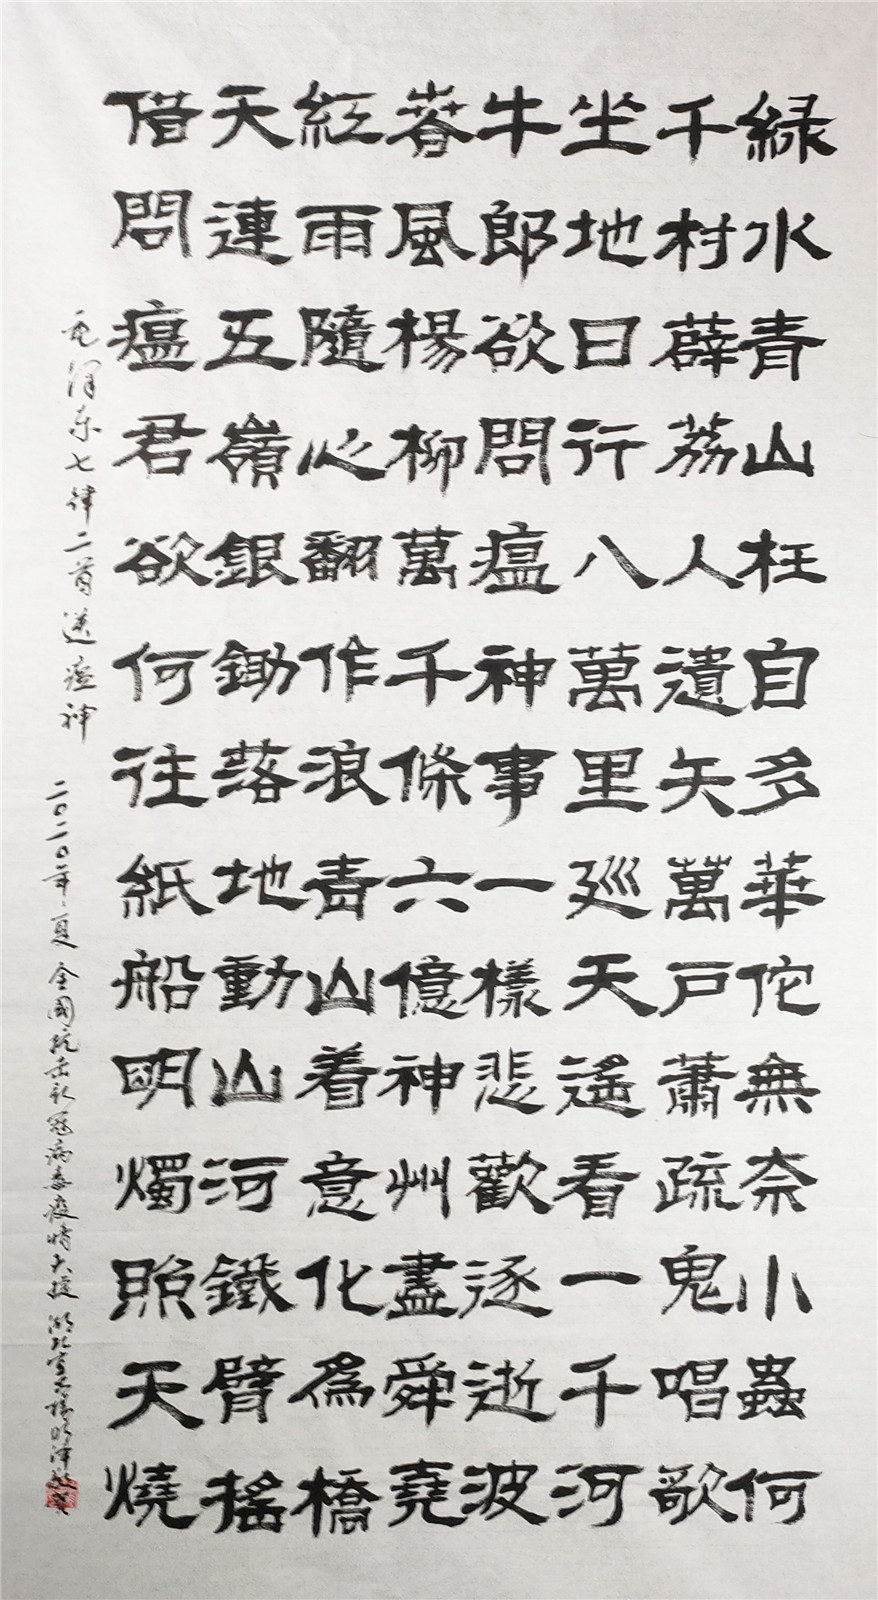 緑水青山枉自多華佗無奈小蟲何
千村薜荔人遺矢萬戶蕭疏鬼唱歌
坐地日行八萬里廵天遙看一千河
牛郎欲問瘟神事一樣悲歡逐逝波
萅風楊柳萬千條六億神州盡舜堯
紅雨隨心翻作浪青山着意化為橋
天連五嶺銀鋤落地動山河鐵臂搖
借問瘟君欲何往紙船明燭照天燒
毛泽东七律二首送瘟神
二〇二〇年夏全國抗击新冠病毒疫情大捷湖北